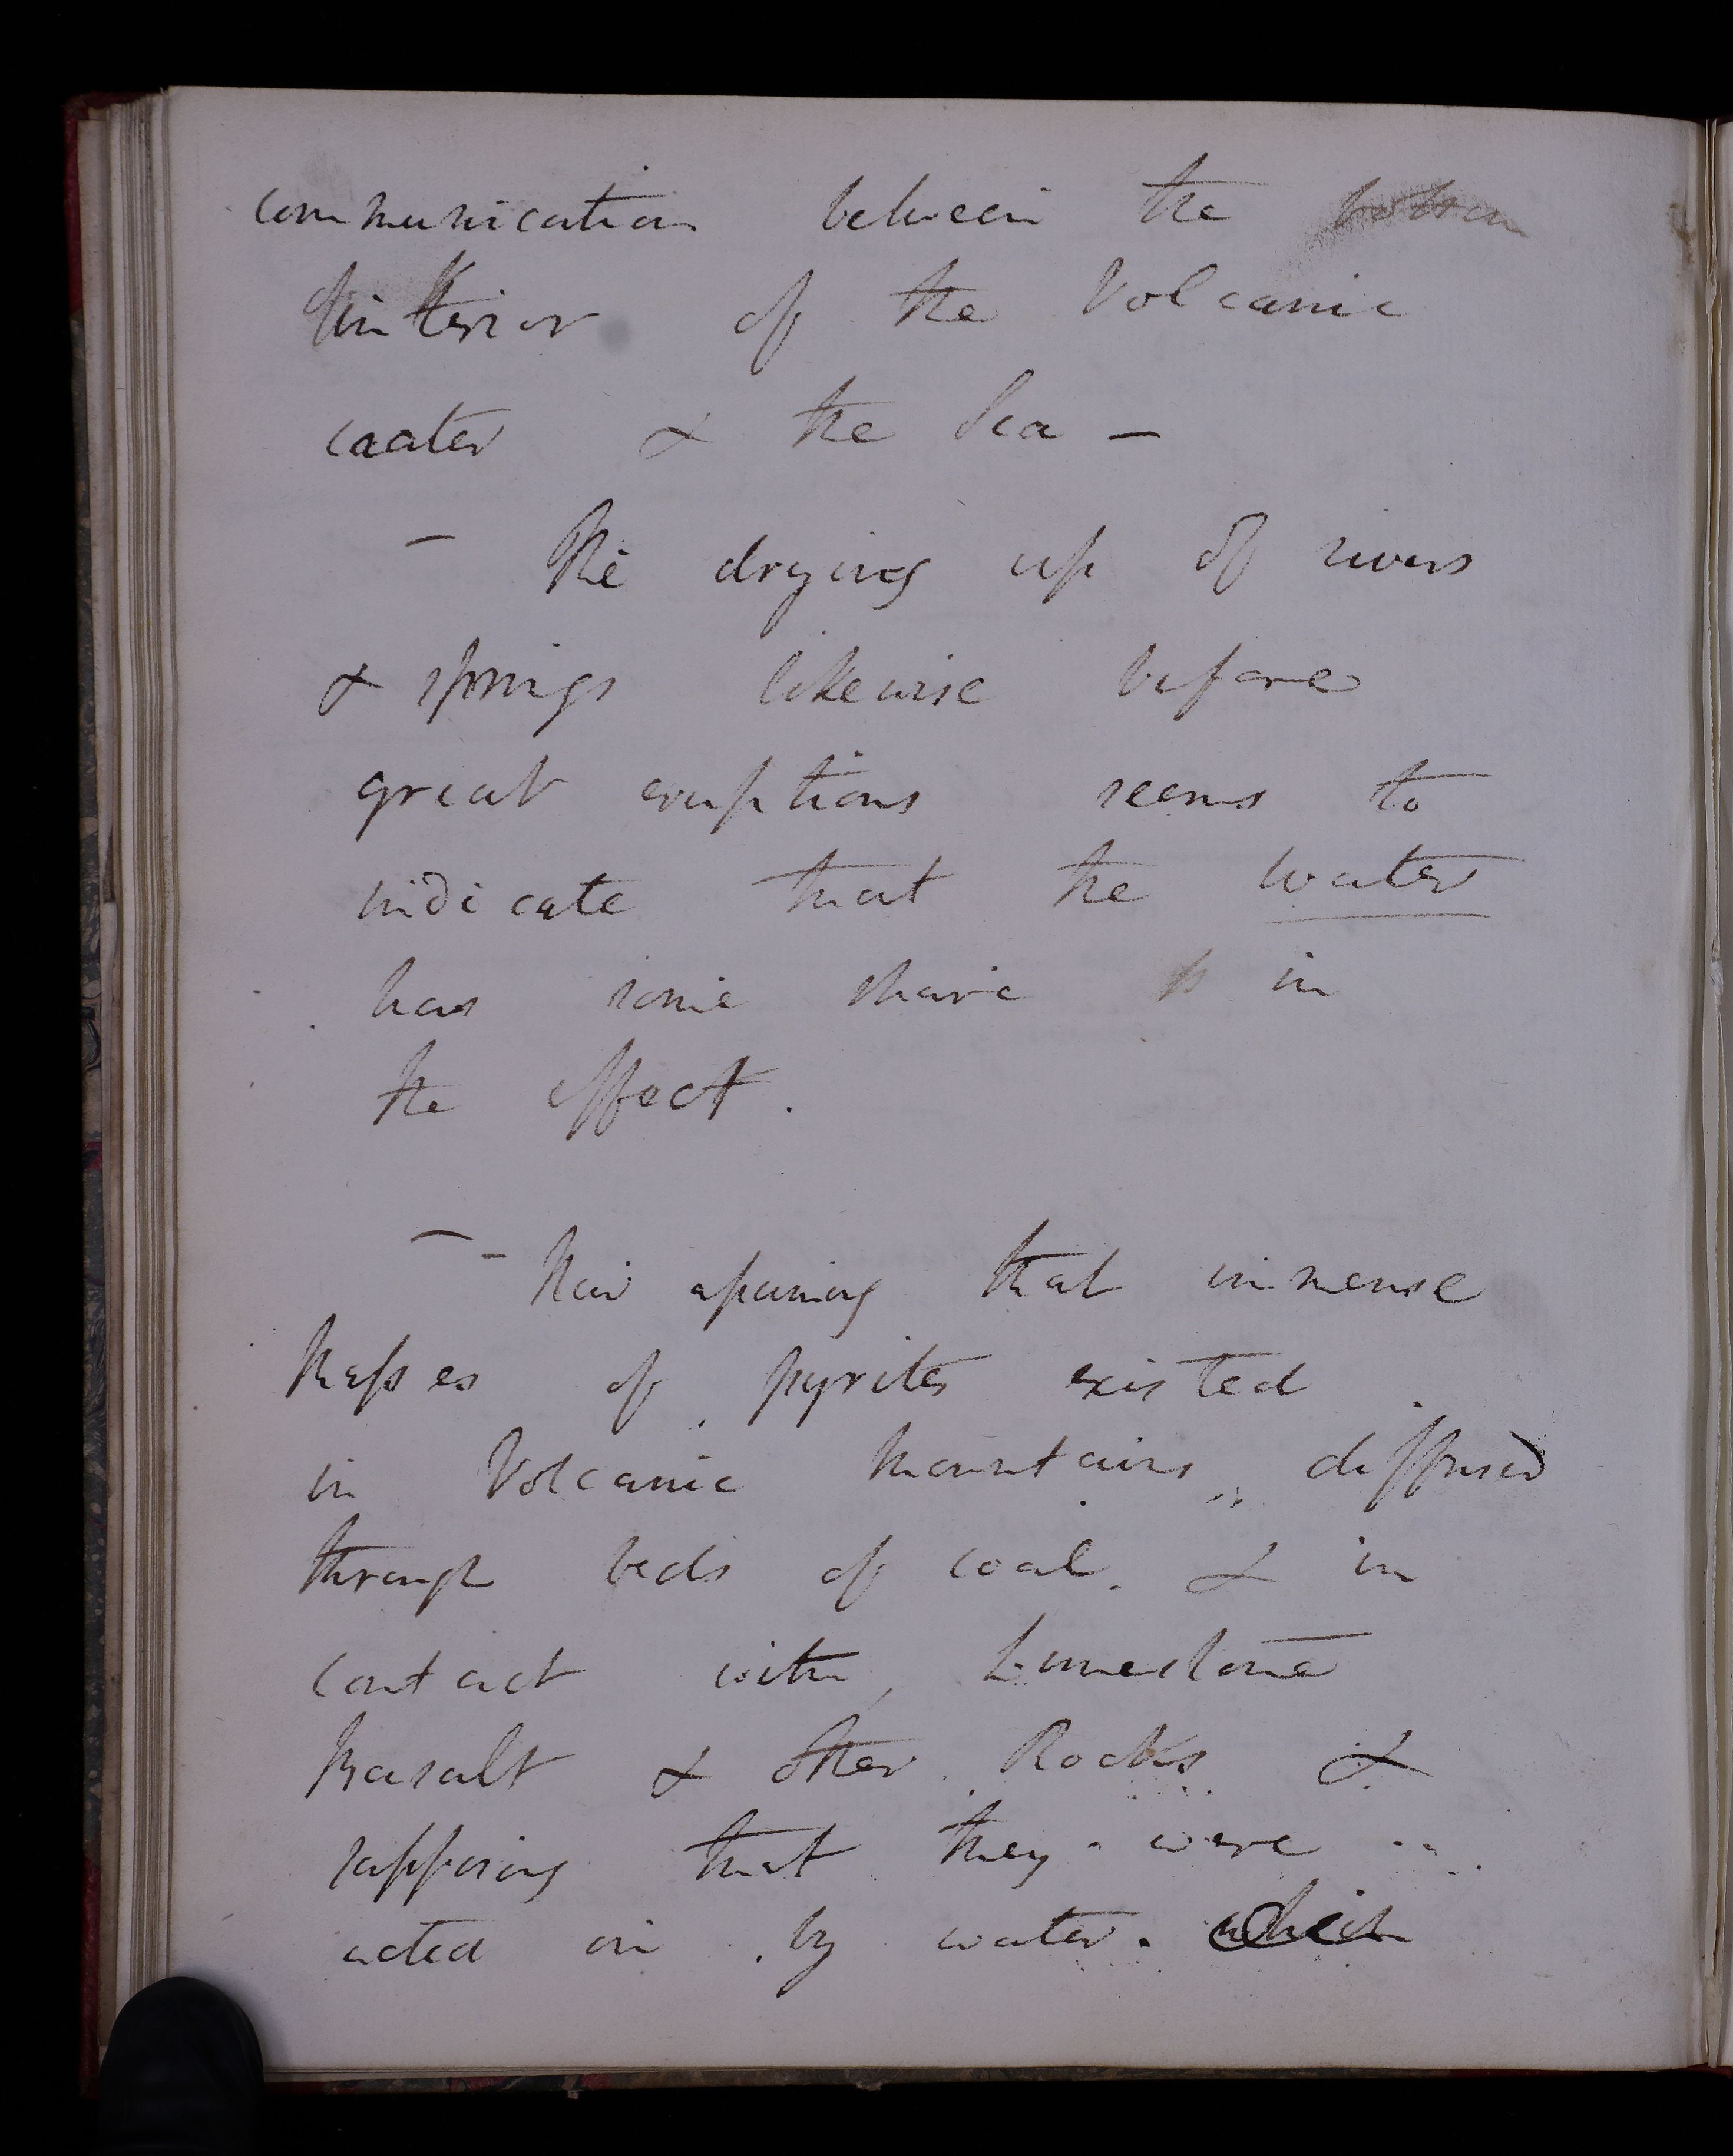 communication between the bottom
interior of the Volcanic
crater & the Sea –
– The drying up of rivers
& springs likewise before
great eruptions seems to
indicate that the water
has some share in
the effect.
– – Now assuming that immense
Masses of pyrites existed
in Volcanic Mountains, diffused
through beds of coal. & in
contact with Limestone
Basalt & other Rocks &
supposing that they were
acted on by water. which